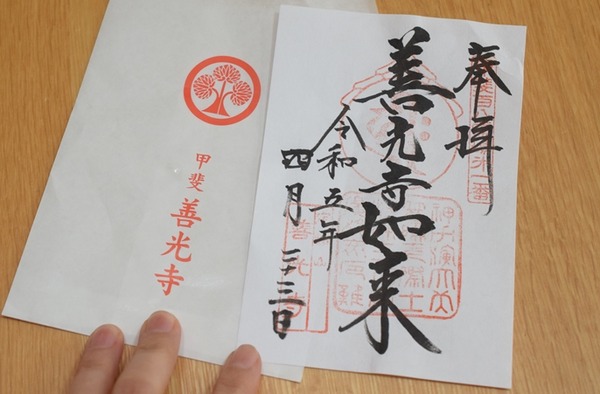 奉拝
善光寺如来
令和五年
四月二十三日
善光寺
甲斐 善光寺